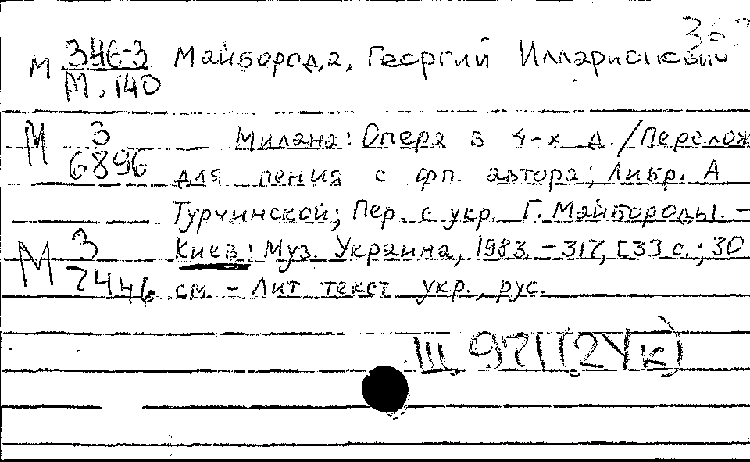 М 346-3 Майборода, Георгий Илларионович
М.140
М 3 Милана: Опера в 4-х д. /Перелож
6896 для пения с фп. автора; Либр. А
Турчинской; Пер. с укр Г. Майбороды. -
М 3 Киев: Муз. Украина, 1983. - 317, [3] с.; 30
7446 см. - Лит текст укр., рус.
III 971(2Ук)